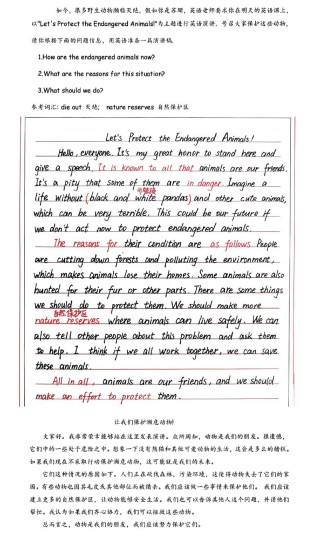 如今，很多野生动物濒临灭绝，假如你是苏珊，英语老师要求你在明天的英语课上，
以"Let's Protect the Endangered Animals!"为主题进行英语演讲，号召大家保护这些动物，
请你根据下面的问题信息，用英语准备一篇演讲稿。
1.How are the endangered animals now?
2.What are the reasons for this situation?
3.What should we do?
参考词汇: die out 灭绝; nature reserves 自然保护区
Let's Protect the Endangered Animals!
Hello, everyone. It's my great honor to stand here and
give a speech. It is known to all that animals are our friends.
It's a pity that some of them are in danger. Imagine a
life without (black and white pandas) and other cute animals,
which can be very terrible. This could be our future if
we don't act now to protect endangered animals.
The reasons for their condition are as follows. People
are cutting down forests and polluting the environment,
which makes animals lose their homes. Some animals are also
hunted for their fur or other parts. There are some things
we should do to protect them. We should make more
自然保护区
nature reserves where animals can live safely. We can
also tell other people about this problem and ask them
to help. I think if we all work together, we can save
these animals.
All in all, animals are our friends, and we should
make an effort to protect them.
让我们保护濒危动物!
大家好。我非常荣幸能够站在这里发表演讲。众所周知，动物是我们的朋友。很遗憾，
它们中的一些处于危险之中。想象一下没有熊猫和其他可爱动物的生活，这会是多么的糟糕。
如果我们现在不采取行动保护濒危动物，这可能就是我们的未来。
它们这种情况的原因如下。人们正在砍伐森林，污染环境，这使得动物失去了它们的家
园。有些动物也因其毛皮或其他部位而被猎杀。我们应该做一些事情来保护他们。我们应该
建立更多的自然保护区，让动物能够安全生活。我们也可以告诉其他人这个问题，并请他们
帮忙。我认为如果我们齐心协力，我们可以拯救这些动物。
总而言之，动物是我们的朋友，我们应该努力保护它们。